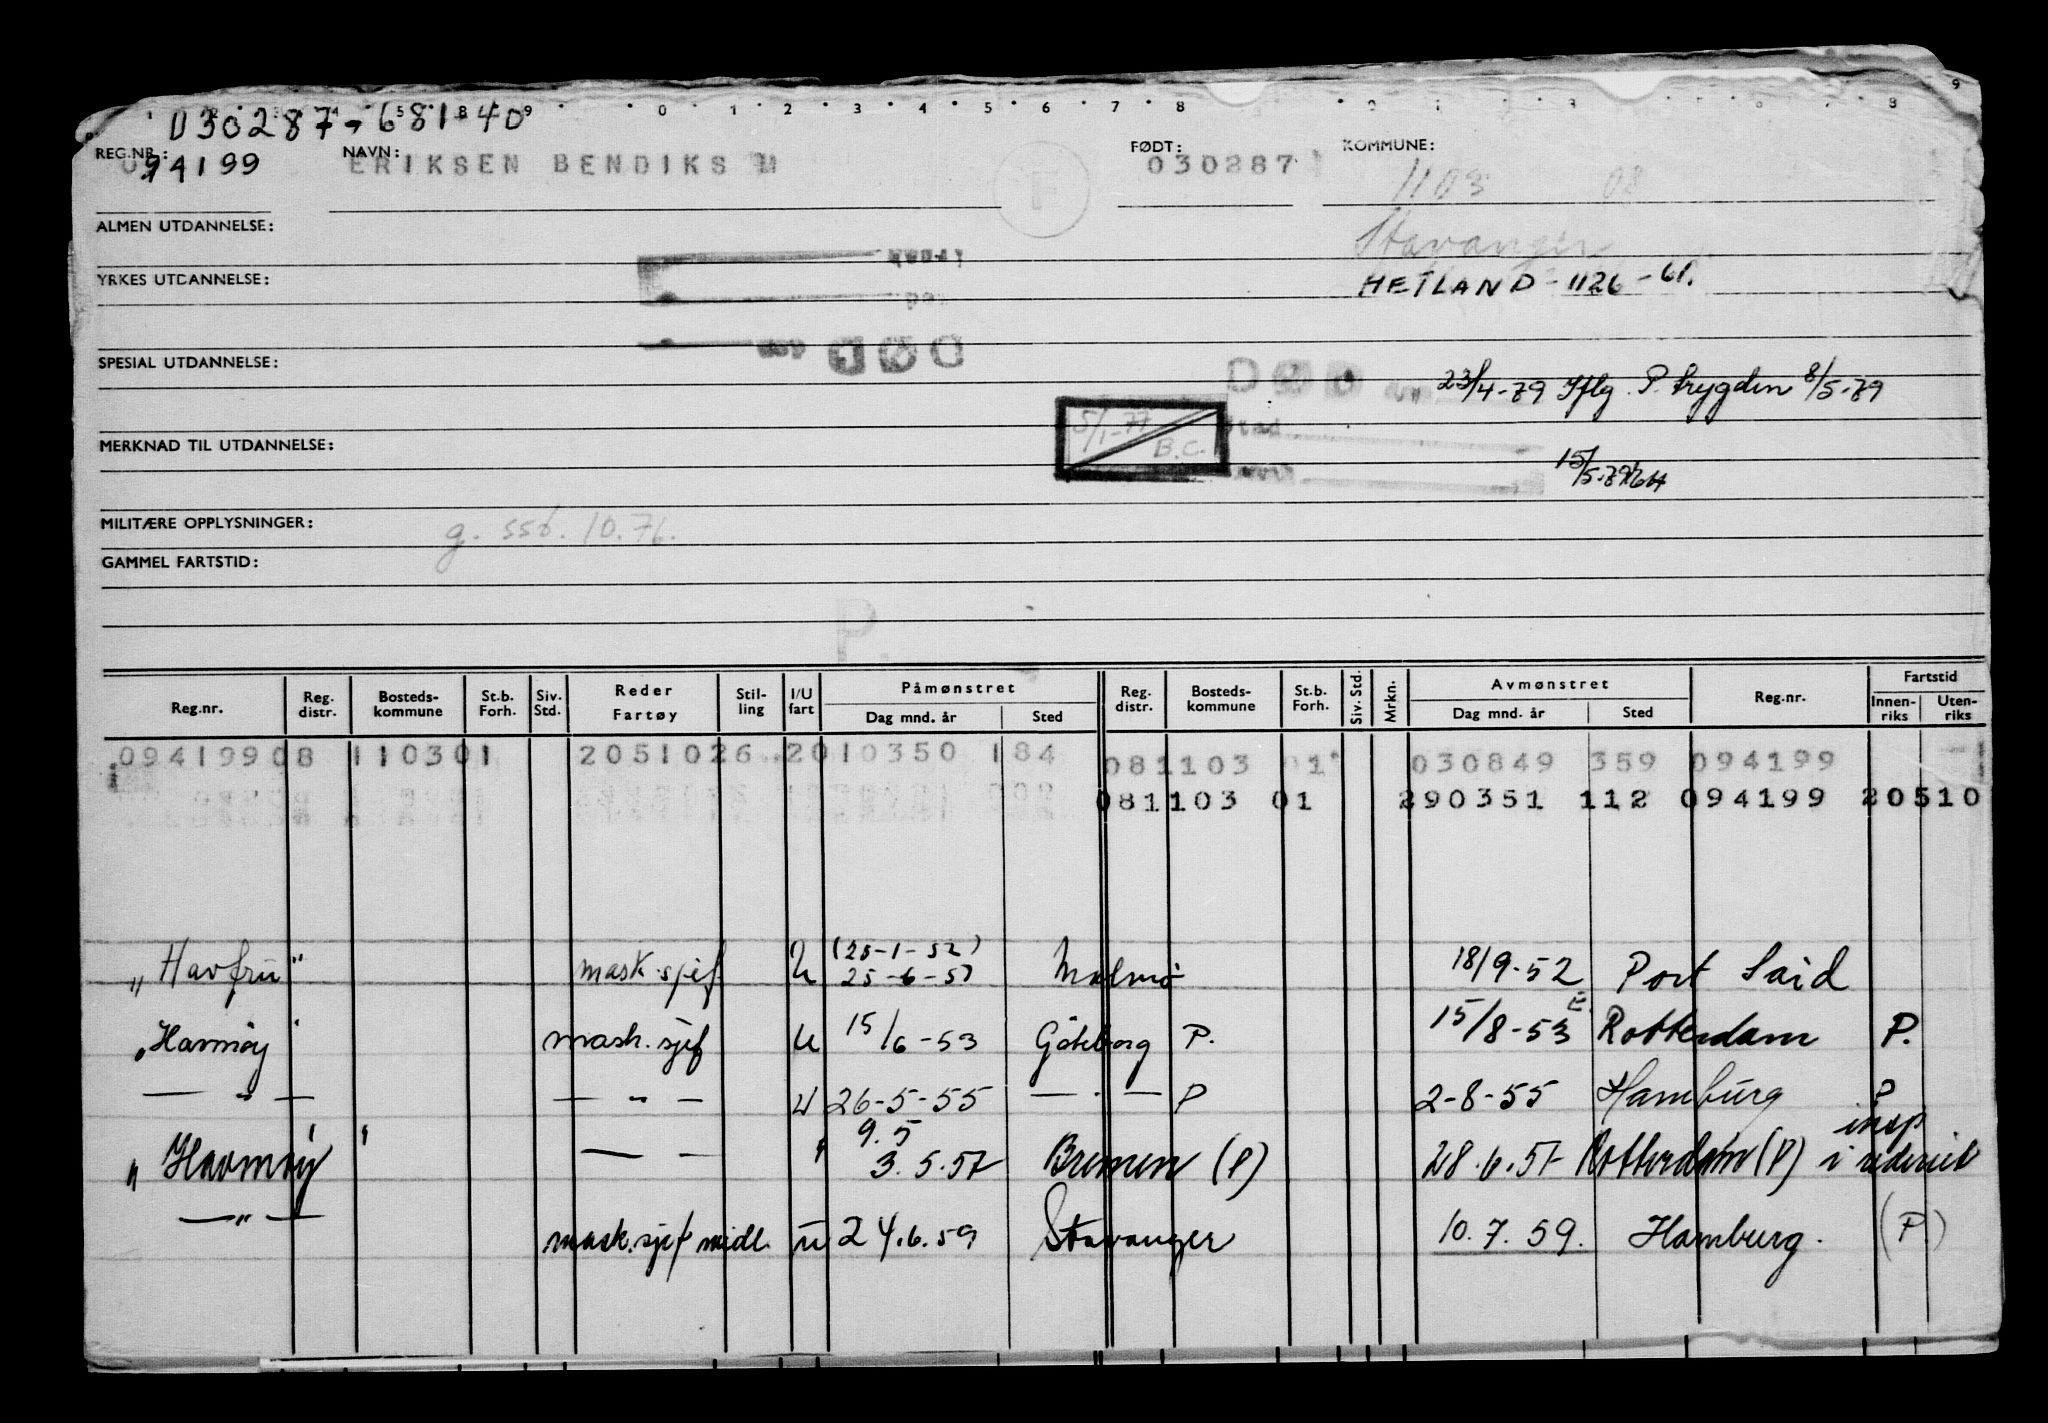 030287-68140
REG.NR.: 094199 NAVN: ERIKSEN BENDIKS FØDT: 030287 KOMMUNE: 1103 08
F
ALMEN UTDANNELSE: Stavanger
YRKES UTDANNELSE: HETLAND - 1126 - 61.
SPESIAL UTDANNELSE: DØD
DØD den 23/4-79 Iflg. P. trygden 8/5-79
5/1-77 B.C. Sted
MERKNAD TIL UTDANNELSE:
15/5-79
MILITÆRE OPPLYSNINGER: g. ssd. 10.76.
GAMMEL FARTSTID:
P.
Reg.nr. Reg. distr. Bosteds-kommune St.b. Forh. Siv. Std. Reder Fartøy Stil-ling I/U fart Påmønstret Dag mnd. år Sted Reg. distr. Bosteds-kommune St.b. Forh. Siv. Std. Mrkn. Avmønstret Dag mnd. år Sted Reg.nr. Fartstid Innen-riks Uten-riks
09419908 110301 2051026 2010350 184 081103 01 030849 359 094199
081103 01 290351 112 094199 20510
(25-1-52)
"Havfru" mask.sjef U 25-6-51 Malmö 18/9-52 Port Said
"Havmøy" mask.sjef U 15/6-53 Göteborg P. 15/8-53 Rotterdam P.
— " — — " — U 26-5-55 — " — P 2-8-55 Hamburg P
9.5 insp
"Havmøy" — — " 3.5.57 Bremen (P) 28.6.57 Rotterdam (P) i rederiet
— " — mask.sjef midl. U 24.6.59 Stavanger 10.7.59. Hamburg. (P)